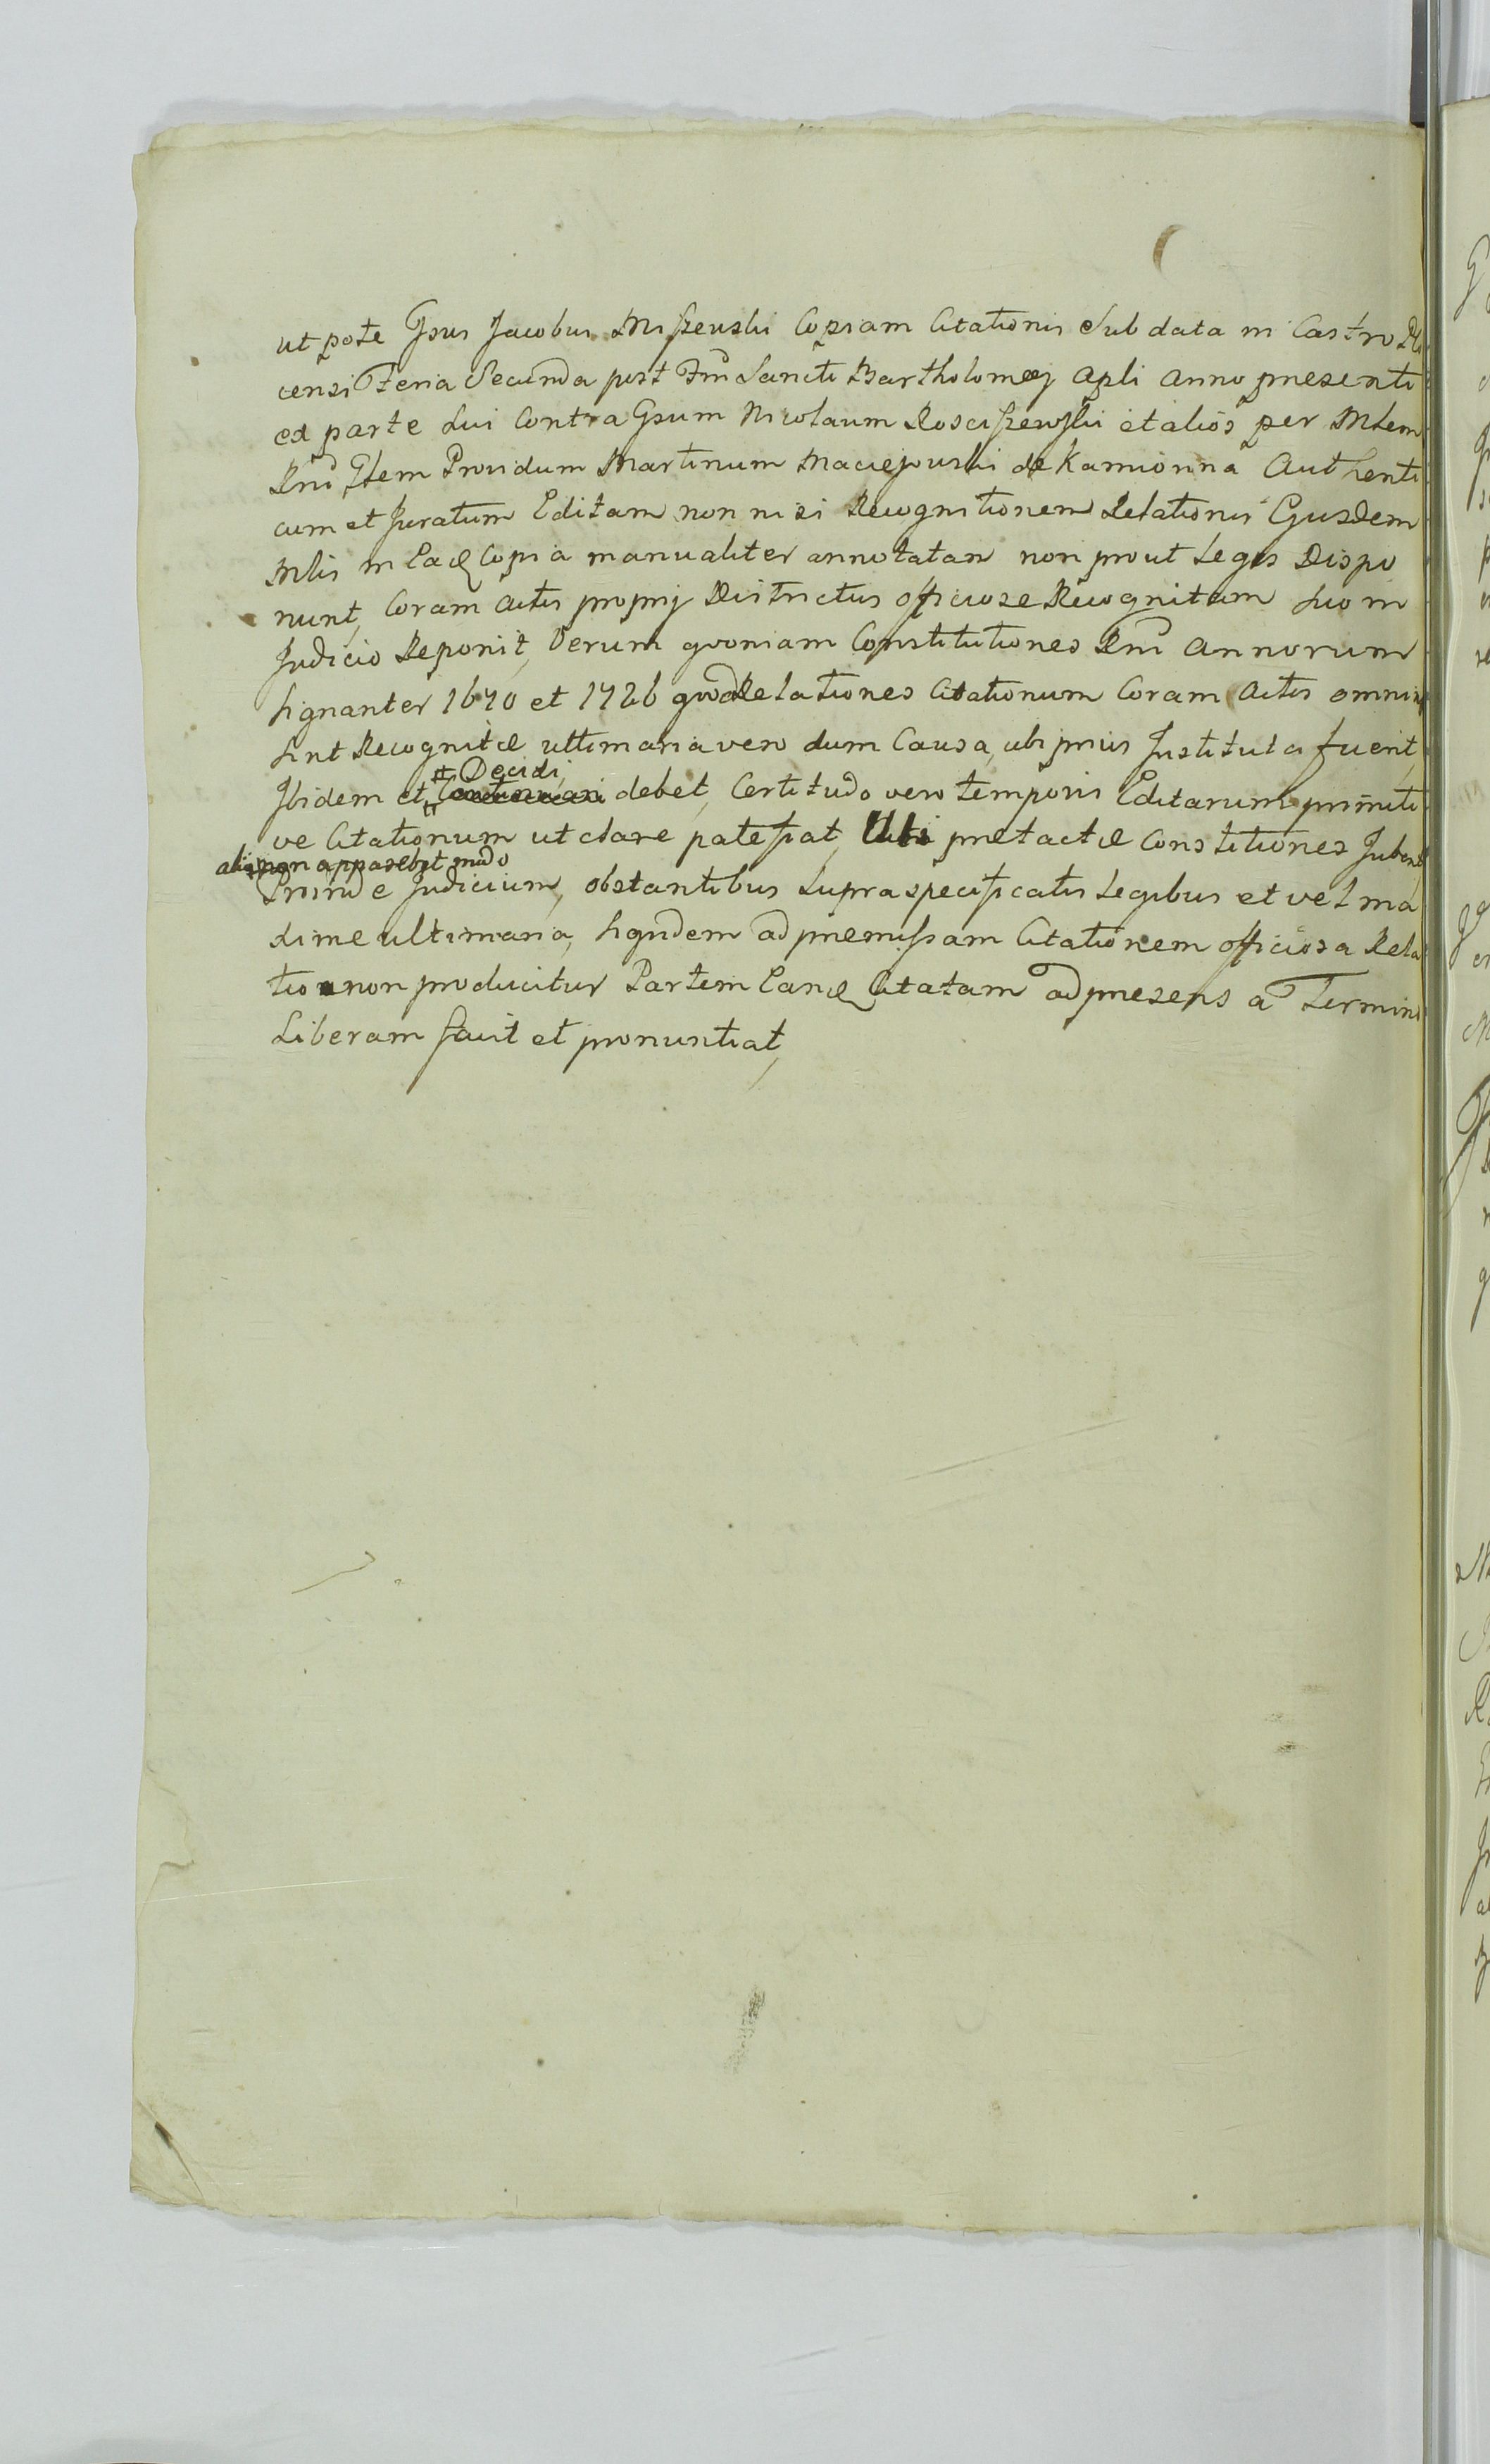 ut pote Gsus Jacobus Miszewski Copiam Citationis Sub data in Castro
censi Feria Secunda post Ftm Sancti Bartholomej Apli Anno presenti
ex parte Sui Contra Gsum Nicolaum Rosciszewski et alios per Mlem
Rni Gtlem Providum Martinum Maciejowski de Kamionna Authenti
cum et Juratum Editam non nisi Recognitionem Relationis Ejusdem
Mlis in Eadq Copia manualiter annotatam non prout Leges Dispo
nunt, Coram Actis proprij Districtus officiose Recognitam Suo in
Judicio Reponit, Verum quoniam Constitutiones Rni Annorum
Signanter 1670 et 1726 quod Relationes Citationum Coram Actis
Sint Recognitæ ultimaria vero dum Causa, ubi prius Instituta fuerit,
# Decidi,
Ibidem et # Continuari debet, Certitudo vero temporis Editarum primiti
ve Citationum ut clare patefiat, Uti pretactæ Constitiones Jubent
non apparebit modo
Proinde Judicium, obstantibus Supra specificatis Legibus et vel ma
xime ultimaria, Siquidem ad præmissam Citationem officiosa Rela
tio non producitur Partem Eanq Citatam ad presens a Termino
Liberam facit et pronuntiat,